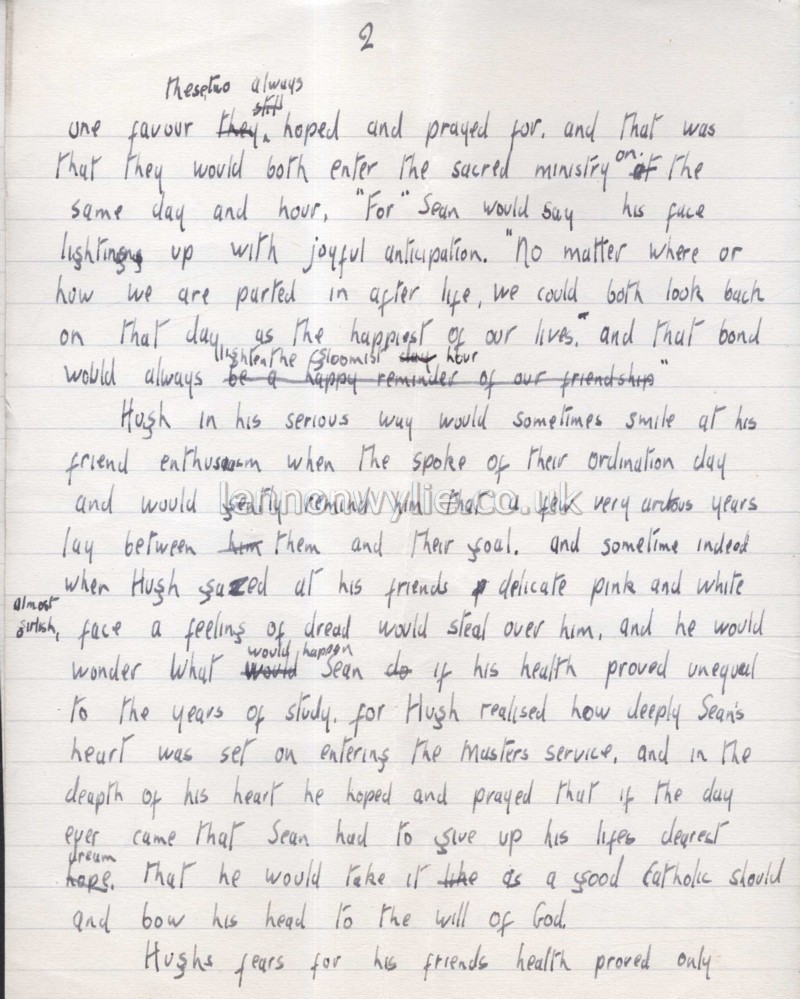 2
these two always
still
one favour they hoped and prayed for. and that was
that they would both enter the sacred ministry on at the
same day and hour, "For" Sean would say his face
lighting up with joyful anticipation. "No matter where or
how we are parted in after life, we could both look back
on that day as the happiest of our lives." and that bond
lighten the gloomist day hour
would always be a happy reminder of our friendship"
Hugh in his serious way would sometimes smile at his
friend enthusiasm when the spoke of their ordination day
and would gently remind him that a few very arduous years
lay between him them and their goal. and sometime indeed
when Hugh gazed at his friends delicate pink and white
almost
girlish, face a feeling of dread would steal over him, and he would
would happen
wonder what would Sean do if his health proved unequal
to the years of study. for Hugh realised how deeply Sean's
heart was set on entering the Masters service, and in the
deapth of his heart he hoped and prayed that if the day
ever came that Sean had to give up his lifes dearest
dream
hope. that he would take it like as a good Catholic should
and bow his head to the will of God.
Hughs fears for his friends health proved only
lannonwylie.co.uk